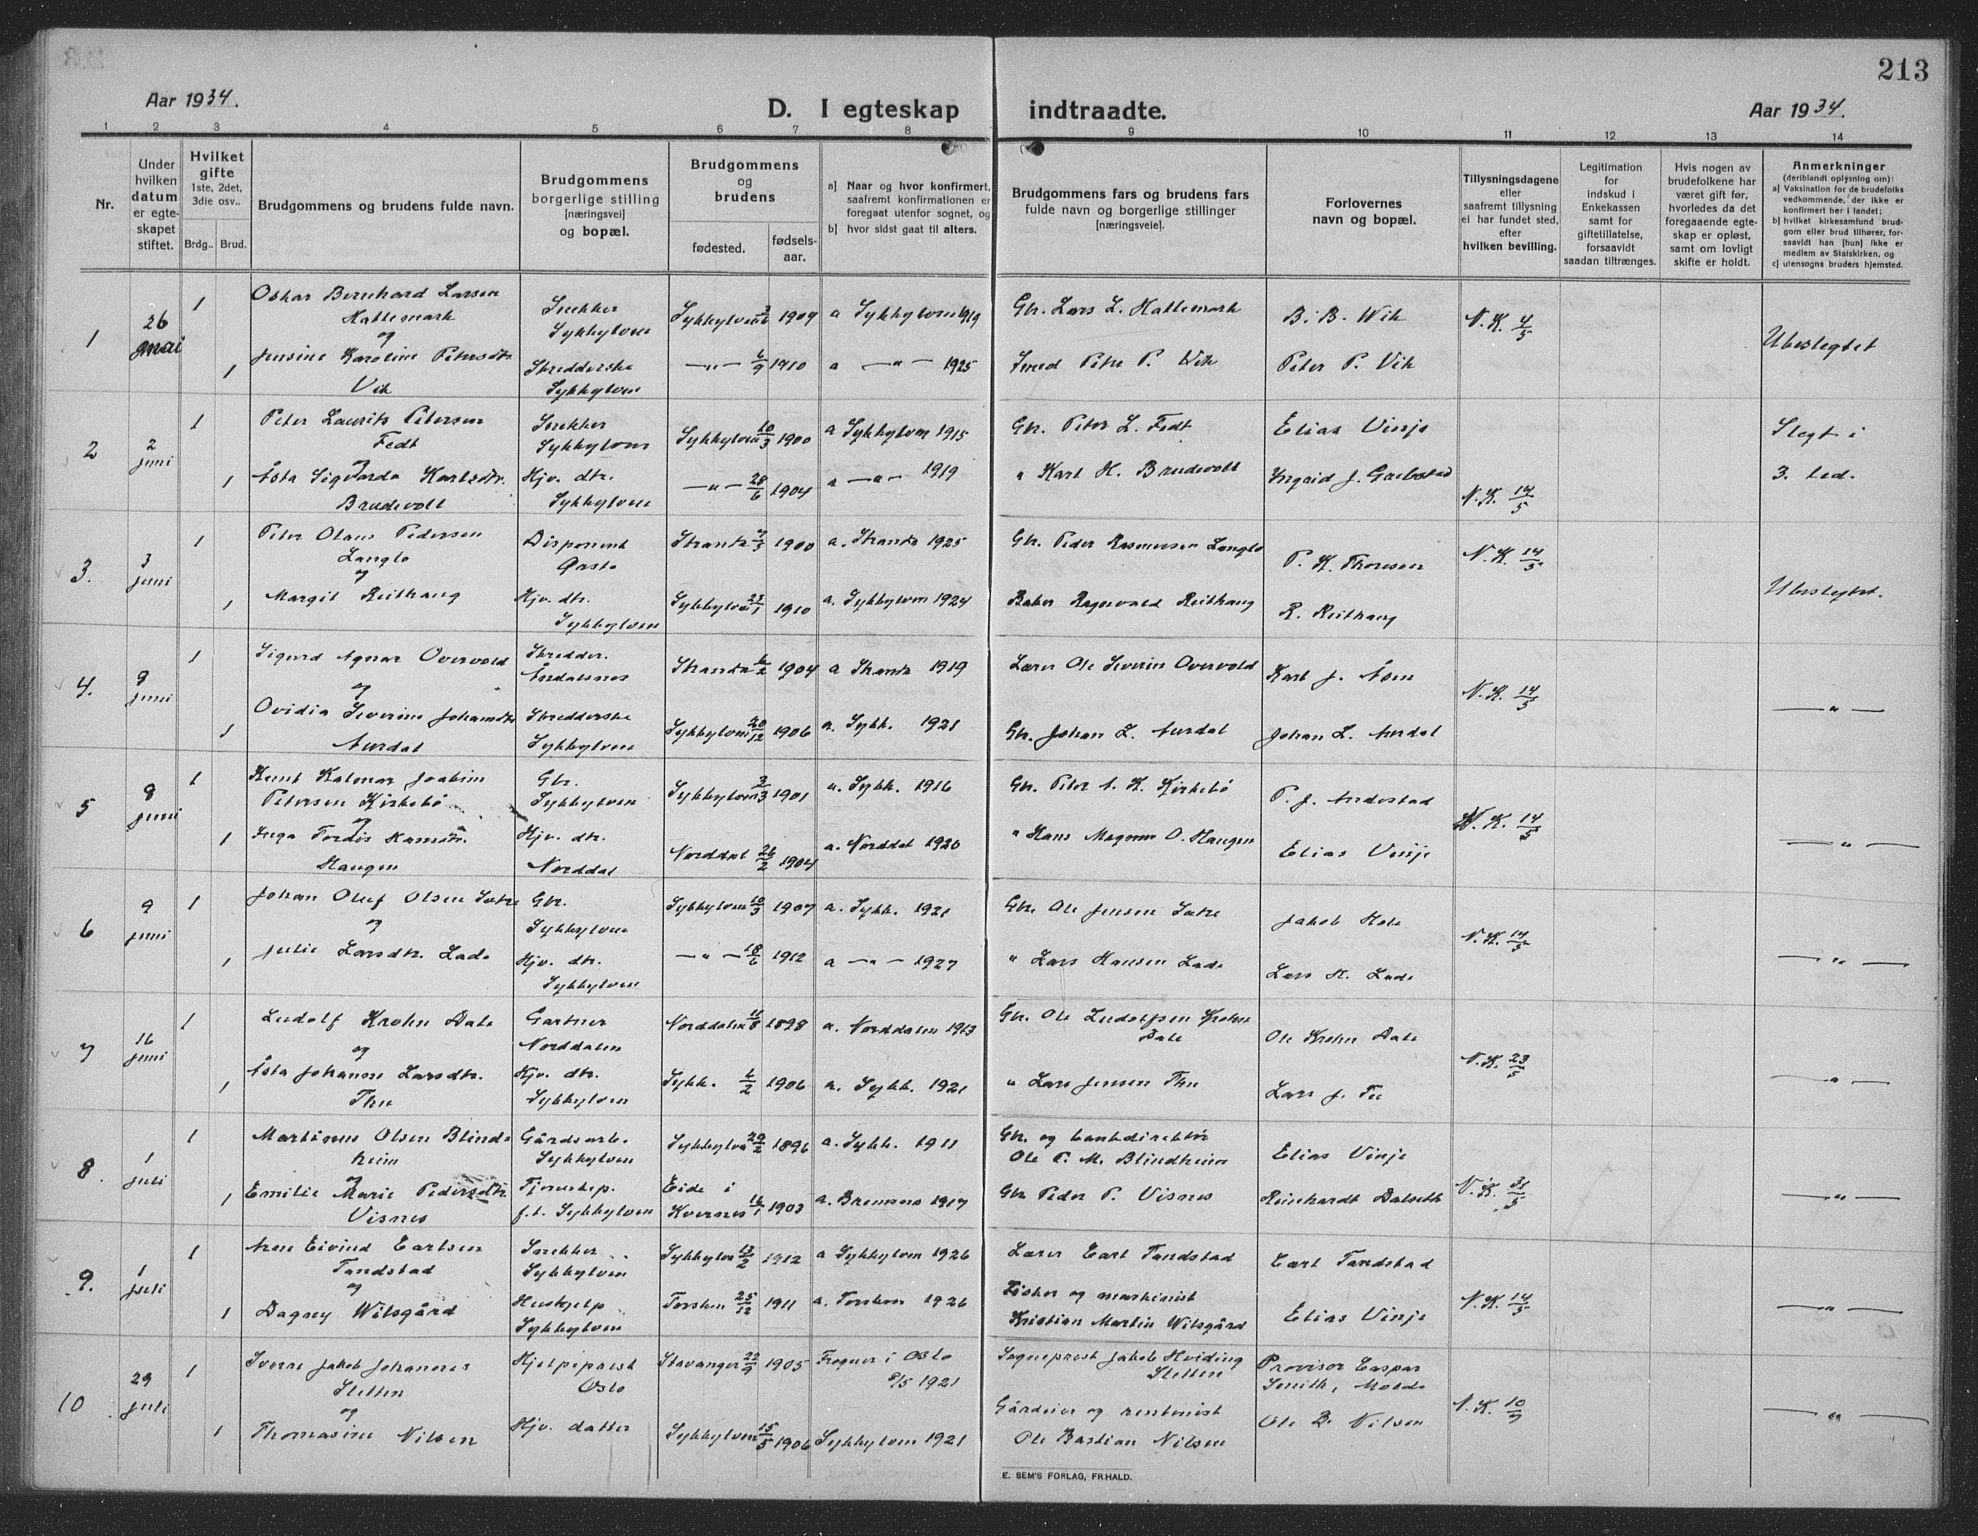 213
Aar 1934.
D. I egteskap indtraadte.
Aar 1934.
1 2 3 4 5 6 7 8 9 10 11 12 13 14
Nr.
Under hvilken datum er egteskapet stiftet.
Hvilket gifte 1ste, 2det, 3die osv..
Brdg.. Brud.
Brudgommens og brudens fulde navn.
Brudgommens borgerlige stilling [næringsvei] og bopæl.
Brudgommens og brudens
fødested. fødselsaar.
a] Naar og hvor konfirmert, saafremt konfirmationen er foregaat utenfor sognet, og
b] hvor sidst gaat til alters.
Brudgommens fars og brudens fars fulde navn og borgerlige stillinger [næringsveie].
Forlovernes navn og bopæl.
Tillysningsdagene eller saafremt tillysning ei har fundet sted, efter hvilken bevilling.
Legitimation for indskud i Enkekassen samt for giftetillatelse, forsaavidt saadan tiltrænges.
Hvis nogen av brudefolkene har været gift før, hvorledes da det foregaaende egteskap er opløst, samt om lovligt skifte er holdt.
Anmerkninger (deriblandt oplysning om):
a] Vaksination for de brudefolks vedkommende, der ikke er konfirmert her i landet;
b] hvilket kirkesamfund brudgom eller brud tilhører, forsaavidt han [hun] ikke er medlem av Statskirken, og
c] utensogns bruders hjemsted.
1 26 mai 1 Oskar Bernhard Larsen Hattemark Snekker Sykkylven 3/6 1904 a Sykkylven 1919 Gbr. Lars L. Hattemark B. B. Wik N. K. 4/5
og
1 Jensine Karoline Petersdtr. Vik Skredderske Sykkylven —"— 6/9 1910 a —"— 1925 Smed Peter P. Wik Peter P. Vik Ubeslegtet
2 2 juni 1 Peter Laurits Petersen Fedt Snekker Sykkylven Sykkylven 10/3 1900 a Sykkylven 1915 Gbr. Peter L. Fedt Elias Vinje Slegt i
og
1 Åsta Sigvarda Karlsdtr. Brudevolt Hjv. dtr. Sykkylven —"— 28/6 1904 a —"— 1919 " Karl K. Brudevolt Ingrid J. Grebstad N. K. 14/5 3. led.
3. 3 juni 1 Peter Olaus Pedersen Langlo Disponent Ørsta Stranda 7/3 1900 a. Stranda 1925 Gbr. Peder Rasmussen Langlo P. K. Thoresen N. K. 14/5
og
1 Margit Reithaug Hjv. dtr. Sykkylven Sykkylven 1910 a. Sykkylven 1924 Baker Ragnvald Reithaug R. Reithaug Ubeslegtet.
4. 9 juni 1 Sigurd Agnar Overvold Skredder. Åndalsnes Stranda 1904 a Stranda 1919 Lærer Ole Severin Overvold Karl J. Aasen
og
1 Ovidia Severine Johansdtr Aurdal Skredderske Sykkylven Sykkylven 20/12 1906 a. Sykk. 1921 Gbr. Johan L. Aurdal Johan L. Aurdal N. K. 14/5 —"—
5 9 juni 1 Knut Kalmar Joakim Petersen Kirkebø Gbr. Sykkylven Sykkylven 3/3 1901 a. Sykk. 1916 Gbr. Peter A. K. Kirkebø P. J. Andestad
og
1 Inga Tordis Hansdtr. Haugen Hjv. dtr. Norddal Norddal 26/2 1904 a. Norddal 1920 " Hans Magnus O. Haugen Elias Vinje N. K. 14/5 —"—
6 9 juni 1 Johan Oluf Olsen Sætre Gbr. Sykkylven Sykkylven 10/3 1907 a. Sykk. 1921 Gbr. Ole Jensen Sætre Jakob Hole
og
1 Julie Larsdtr. Lade Hjv. dtr. Sykkylven —"— 18/6 1912 a —"— 1927 " Lars Hansen Lade Lars H. Lade N. K. 14/5 —"—
7 16 juni 1 Ludolf Krohn Dale Gartner Norddalen Norddalen 11/8 1898 a. Norddalen 1913 Gbr. Ole Ludolfsen Krohn Dale Ole Krohn Dale
og
1 Åsta Johanne Larsdtr. Thu Hjv. dtr. Sykkylven Sykk. 1906 a. Sykk. 1921 " Lars Jensen Thu Lars J. Tu N. K. 23/5 —"—
8. 1 juli 1 Martinus Olsen Blindheim Gårdsarb. Sykkylven Sykkylven 29/2 1896 a. Sykk. 1911 Gbr. og bankdirektør Ole P. M. Blindheim Elias Vinje
og
1 Emilie Marie Pedersdtr Visnes Tjenestep. f.t. Sykkylven Eide i Kvernes 1903 a. Bremsnes 1917 Gbr Peder P. Visnes Reinhardt Dalseth N. K. 31/5 —"—
9. 1 juli 1 Arne Eivind Carlsen Tandstad Snekker Sykkylven Sykkylven 13/2 1912 a Sykkylven 1926 Lærer Carl Tandstad Carl Tandstad
og
1 Dagny Wilsgård Hushjelp Sykkylven Torsken 25/12 1911 a. Torsken 1926 Fisker og maskinist Kristian Martin Wilsgård Elias Vinje N. K. 14/5 —"—
10 29 juli 1 Sverre Jakob Johannes Sletten Hjelpeprest Oslo Stavanger 22/9 1905 Frogner i Oslo 8/5 1921 Sogneprest Jakob Hviding Sletten Provisor Caspar Smith, Molde
og
1 Thomasine Nilsen Hjv. datter Sykkylven 15/5 1906 Sykkylven 1921 Gårdeier og rentenist Ole Bastian Nilsen Ole B. Nilsen N. K. 10/7 —"—
E. SEM'S FORLAG, FR.HALD.